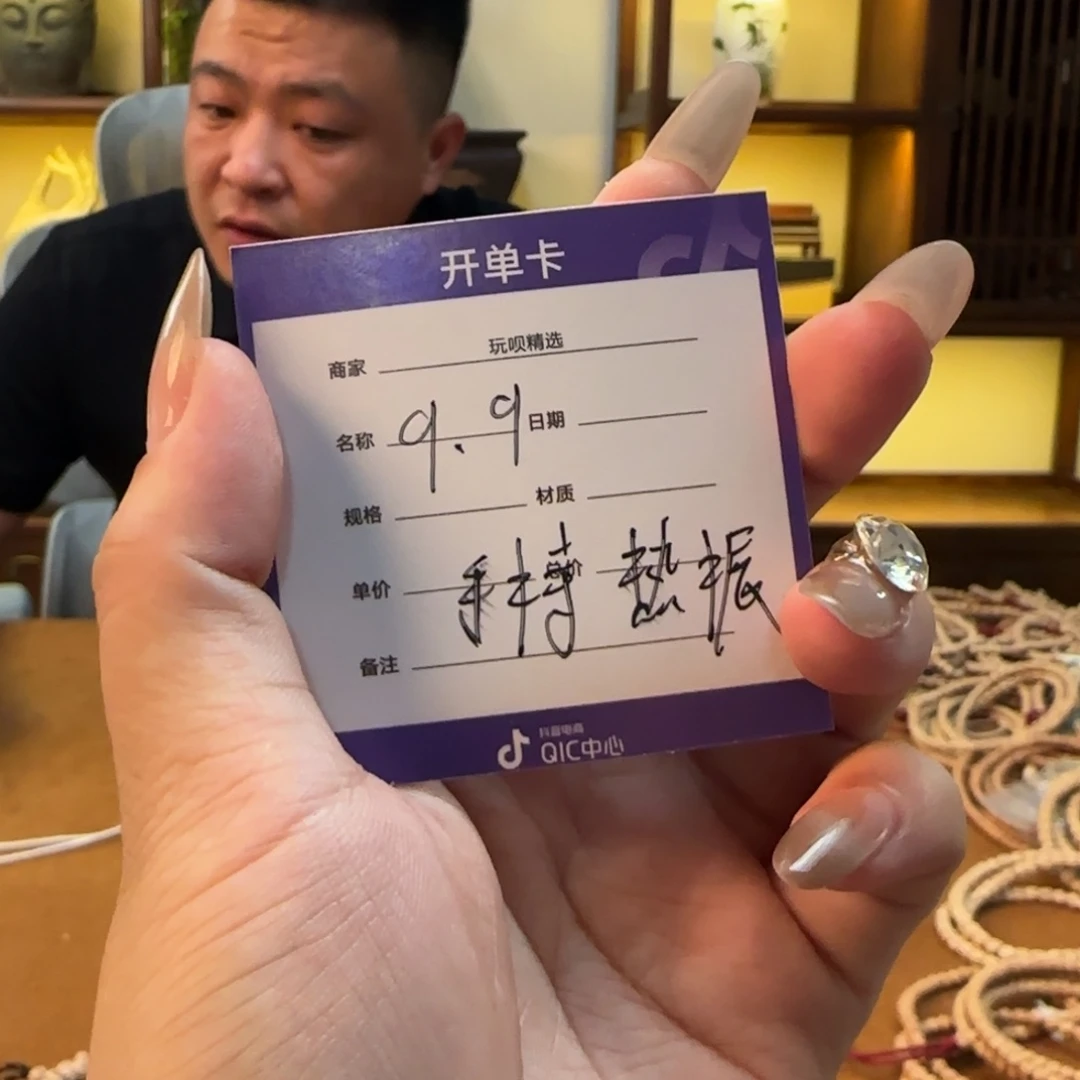 开单卡
商家 玩呗精选
名称 9.9 日期
规格 材质
单价
备注
抖音电商
QIC中心